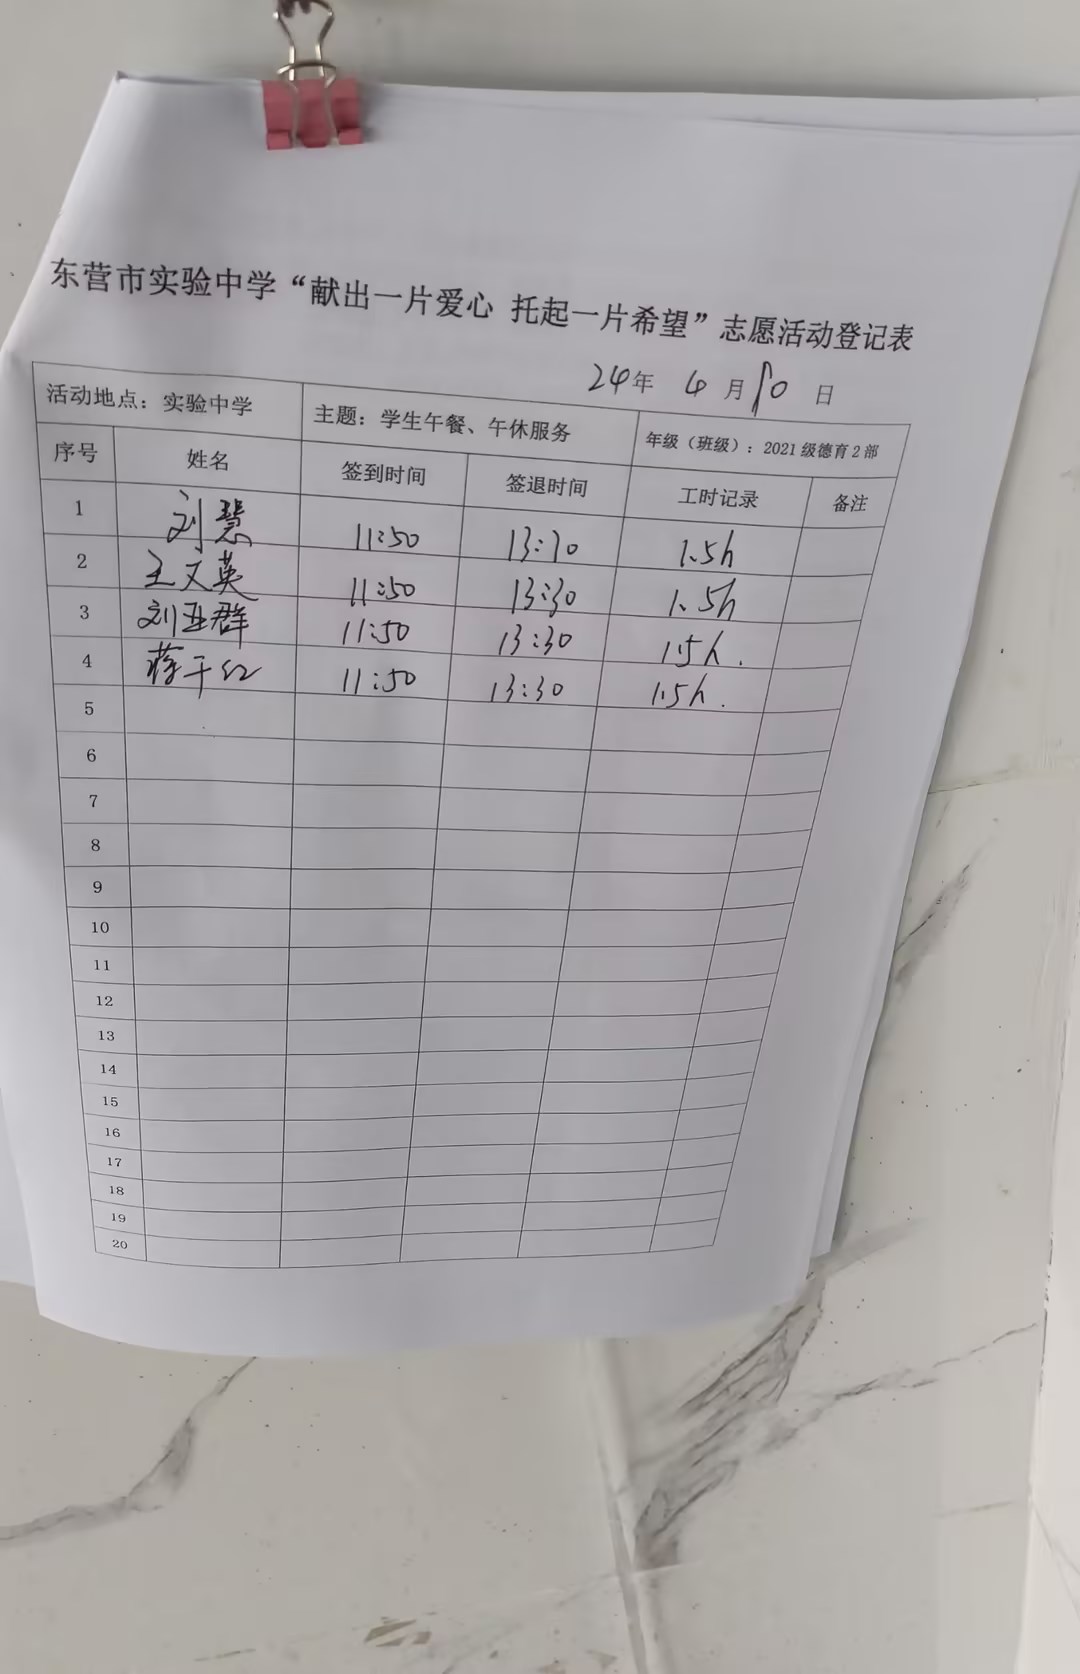 东营市实验中学“献出一片爱心 托起一片希望”志愿活动登记表
24年 4月10日
活动地点：实验中学 主题：学生午餐、午休服务 年级（班级）：2021级德育2部
序号 姓名 签到时间 签退时间 工时记录 备注
1 刘慧 11:50 13:30 1.5h
2 王文英 11:50 13:30 1.5h
3 刘亚群 11:50 13:30 1.5h.
4 蒋于红 11:50 13:30 1.5h.
5
6
7
8
9
10
11
12
13
14
15
16
17
18
19
20